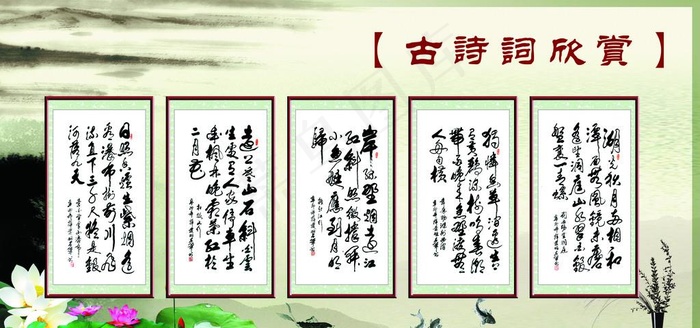 【古詩詞欣賞】
日照香爐生紫煙遙
看瀑布掛前川飛
流直下三千尺疑是銀
河落九天
遠上寒山石斜白雲
生處有人家停車坐
愛楓林晚霜葉紅於
二月花
岸綠野烟遠江
紅斜照微撐開
小漁艇應到月明
歸
獨憐幽草澗邊生
上有黃鸝深樹鳴春潮
帶雨晚來急野渡無
人舟自橫
湖光秋月兩相和
潭面無風鏡未磨
遙望洞庭山水翠白銀
盤裏一青螺